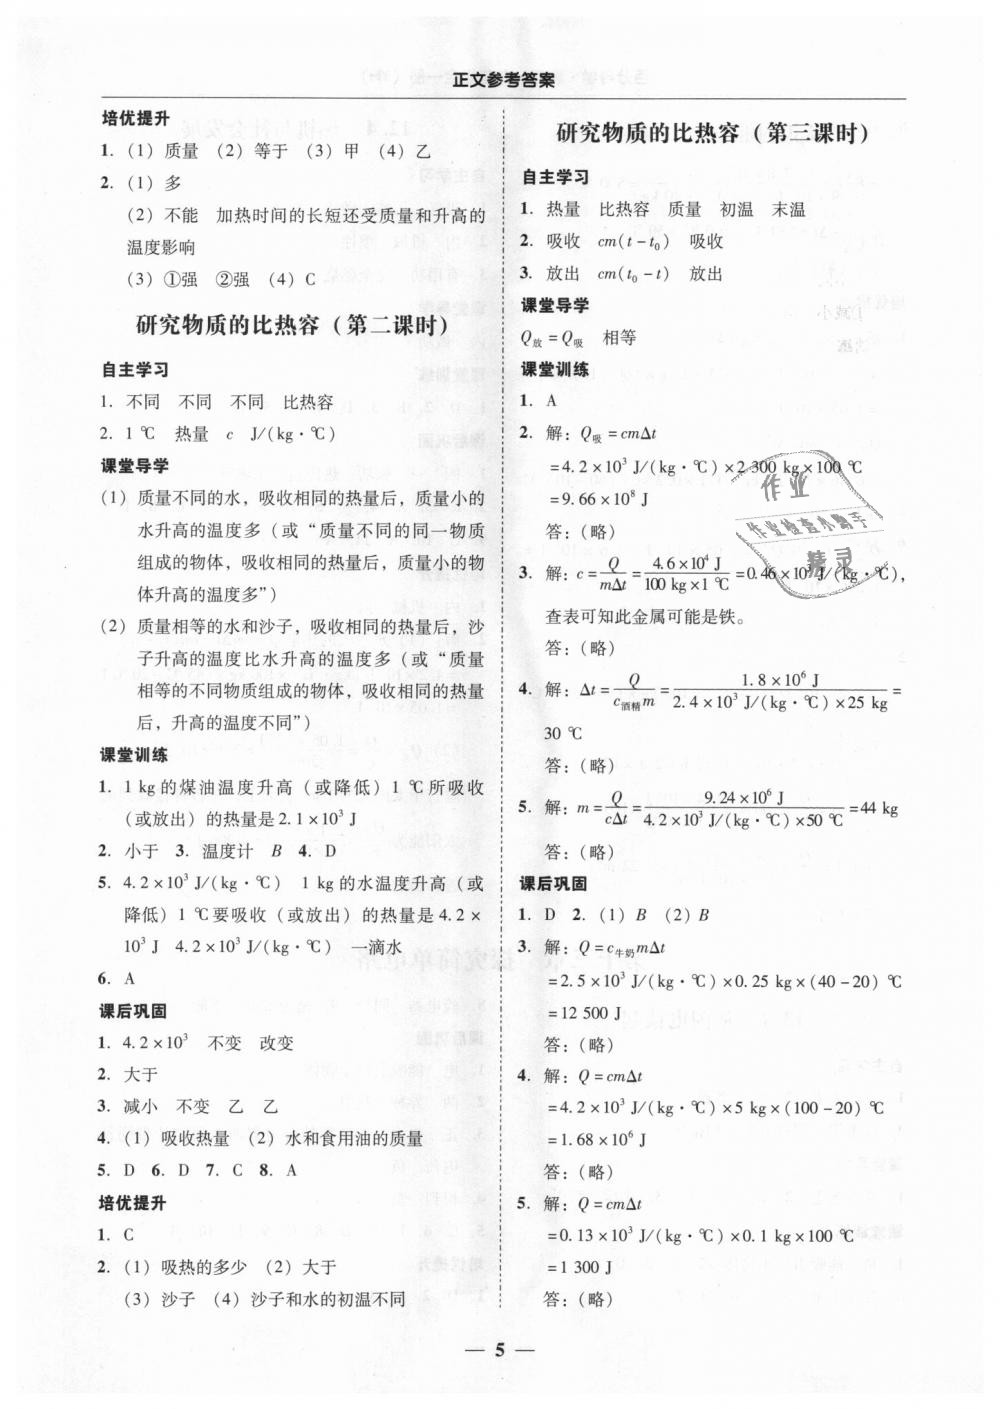 正文参考答案
培优提升
1. (1) 质量 (2) 等于 (3) 甲 (4) 乙
2. (1) 多
(2) 不能 加热时间的长短还受质量和升高的
温度影响
(3) ①强 ②强 (4) C
研究物质的比热容（第二课时）
自主学习
1. 不同 不同 不同 比热容
2. 1 ℃ 热量 c J/(kg·℃)
课堂导学
(1) 质量不同的水，吸收相同的热量后，质量小的
水升高的温度多（或“质量不同的同一物质
组成的物体，吸收相同的热量后，质量小的物
体升高的温度多”）
(2) 质量相等的水和沙子，吸收相同的热量后，沙
子升高的温度比水升高的温度多（或“质量
相等的不同物质组成的物体，吸收相同的热量
后，升高的温度不同”）
课堂训练
1. 1 kg 的煤油温度升高（或降低）1 ℃ 所吸收
（或放出）的热量是 2.1×10³ J
2. 小于 3. 温度计 B 4. D
5. 4.2×10³ J/(kg·℃) 1 kg 的水温度升高（或
降低）1 ℃ 要吸收（或放出）的热量是 4.2×
10³ J 4.2×10³ J/(kg·℃) 一滴水
6. A
课后巩固
1. 4.2×10³ 不变 改变
2. 大于
3. 减小 不变 乙 乙
4. (1) 吸收热量 (2) 水和食用油的质量
5. D 6. D 7. C 8. A
培优提升
1. C
2. (1) 吸热的多少 (2) 大于
(3) 沙子 (4) 沙子和水的初温不同
研究物质的比热容（第三课时）
自主学习
1. 热量 比热容 质量 初温 末温
2. 吸收 cm(t-t₀) 吸收
3. 放出 cm(t₀-t) 放出
课堂导学
Q放=Q吸 相等
课堂训练
1. A
2. 解：Q吸=cmΔt
=4.2×10³ J/(kg·℃)×2 300 kg×100 ℃
=9.66×10⁸ J
答：（略）
3. 解：c=Q/mΔt=4.6×10⁴ J/100 kg×1 ℃=0.46×10³ J/(kg·℃),
查表可知此金属可能是铁。
答：（略）
4. 解：Δt=Q/c酒精m=1.8×10⁶ J/2.4×10³ J/(kg·℃)×25 kg=
30 ℃
答：（略）
5. 解：m=Q/cΔt=9.24×10⁶ J/4.2×10³ J/(kg·℃)×50 ℃=44 kg
答：（略）
课后巩固
1. D 2. (1) B (2) B
3. 解：Q=c牛奶mΔt
=2.5×10³ J/(kg·℃)×0.25 kg×(40-20) ℃
=12 500 J
答：（略）
4. 解：Q=cmΔt
=4.2×10³ J/(kg·℃)×5 kg×(100-20) ℃
=1.68×10⁶ J
答：（略）
5. 解：Q=cmΔt
=0.13×10³ J/(kg·℃)×0.1 kg×100 ℃
=1 300 J
答：（略）
作业
作业检查小帮手
精灵
— 5 —